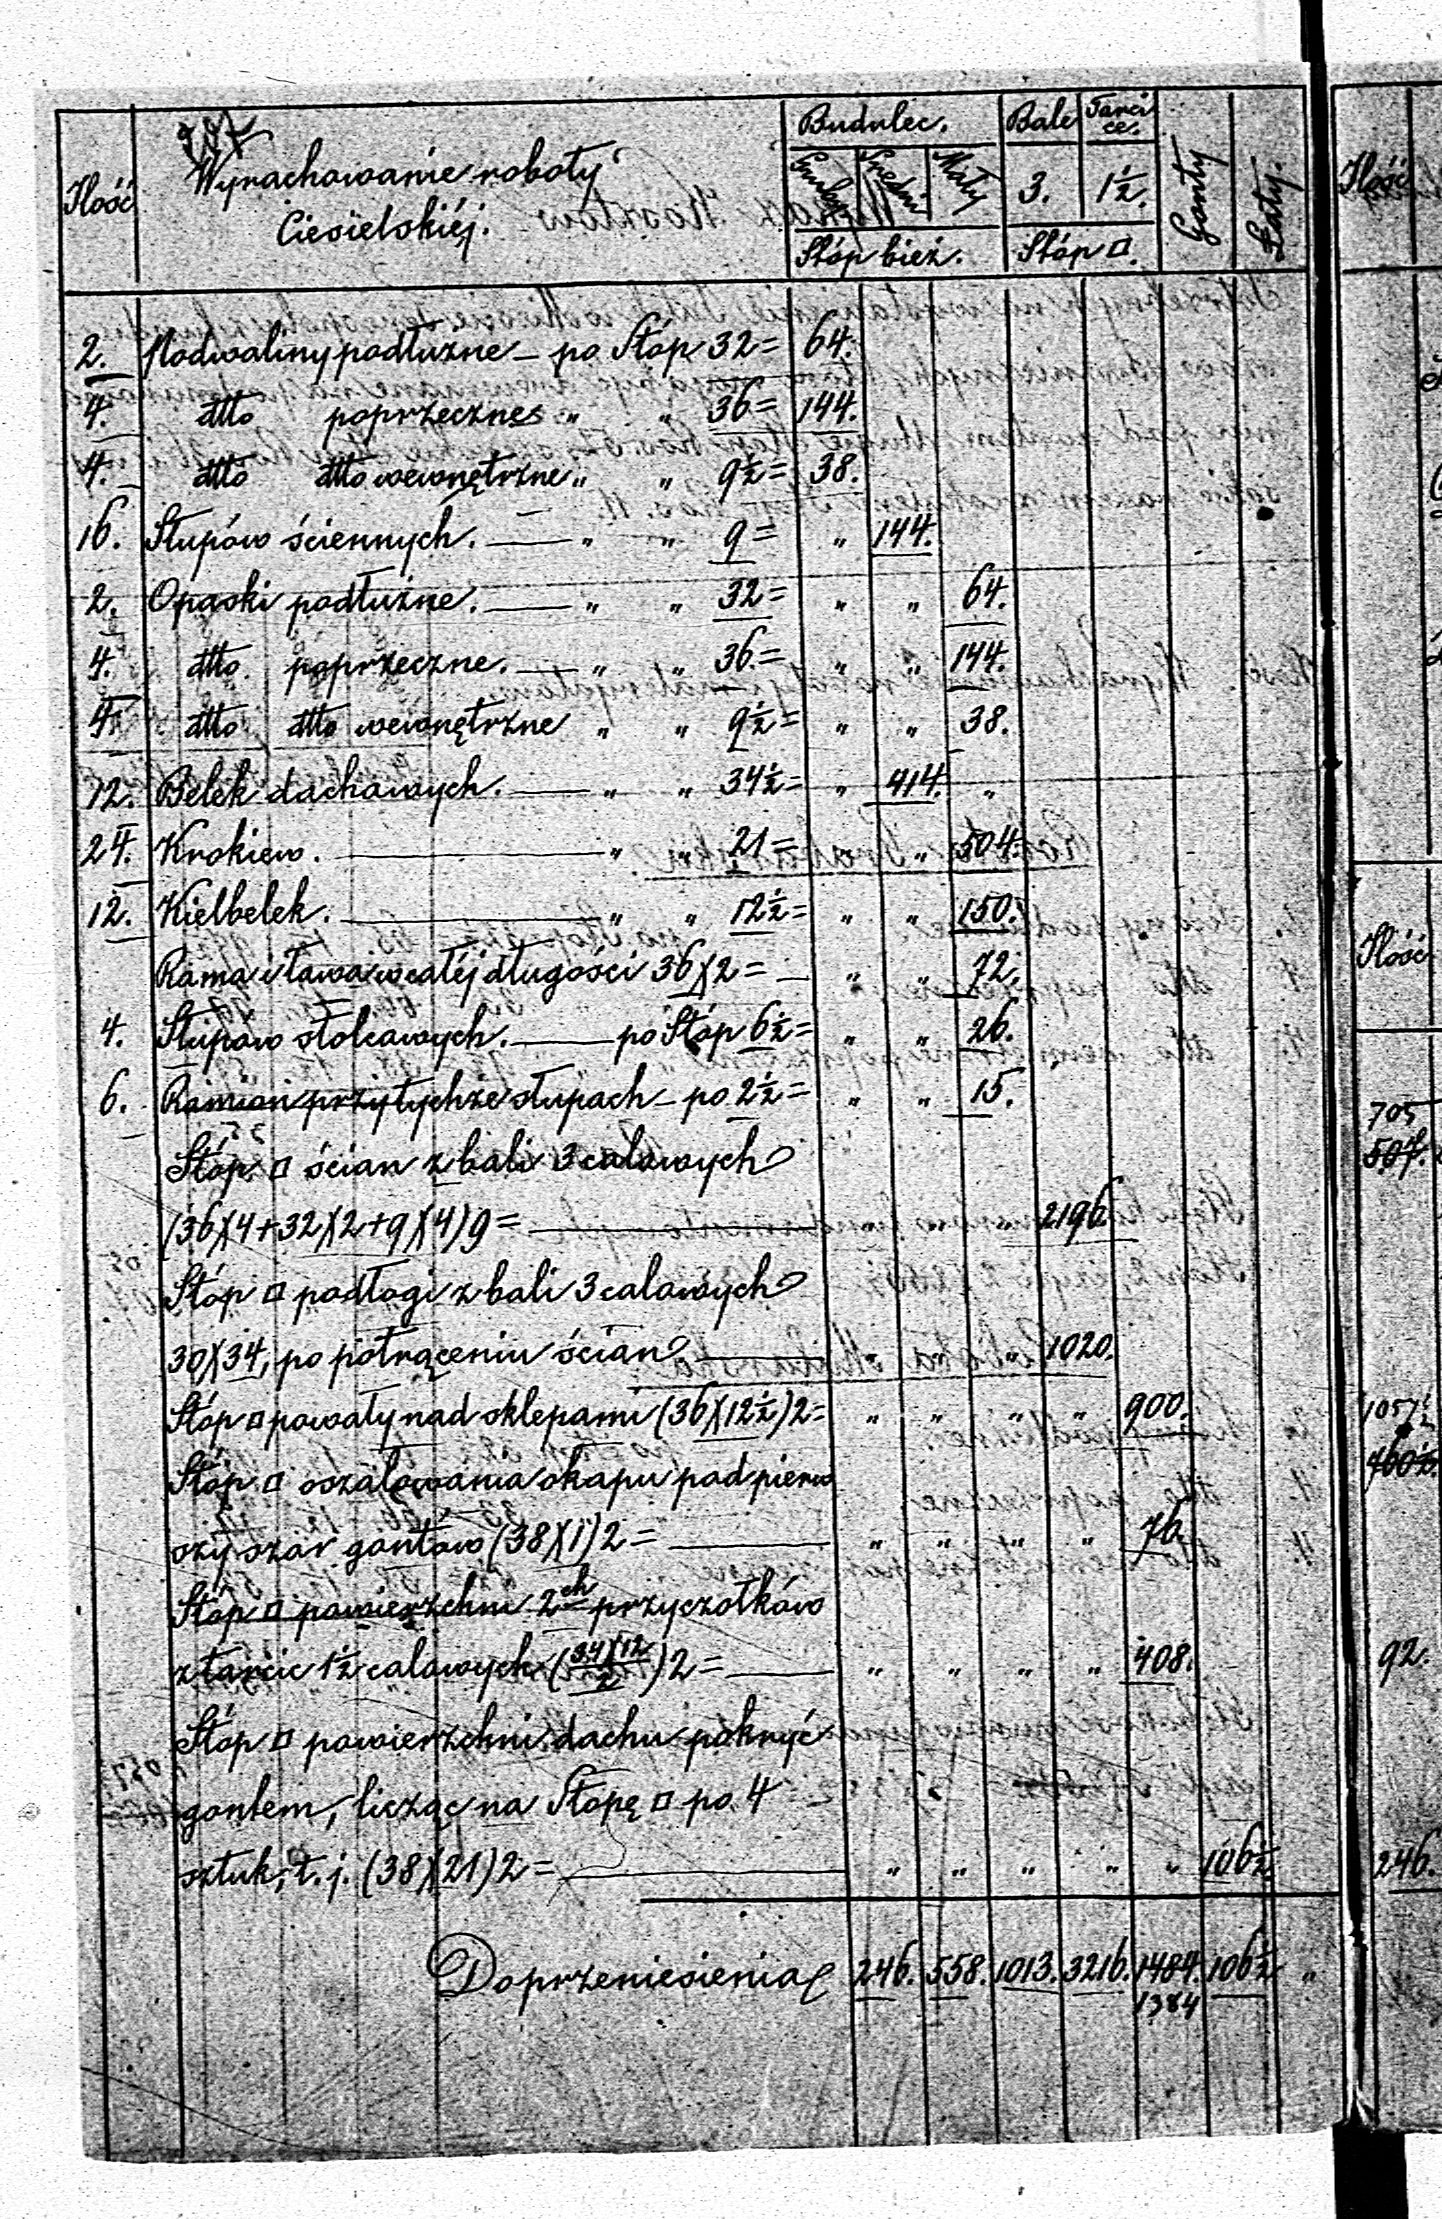 Ilość
Wyrachowanie roboty
Ciesielskiéj.
Budulec. Bale Tarcice.
Gruby Średni Mały 3. 1½. Gonty Łaty.
Stóp bież. Stóp □.
2. Podwaliny podłużne – po Stóp 32 = 64.
4. dtto poprzeczne „ „ 36 = 144.
4. dtto dtto wewnętrzne „ „ 9½ = 38.
16. Słupów ściennych. — „ „ 9 = „ 144.
2. Opaski podłużne. — „ „ 32 = „ „ 64.
4. dtto poprzeczne. — „ „ 36 = „ „ 144.
4. dtto dtto wewnętrzne „ „ 9½ = „ „ 38.
12. Belek dachowych. — „ „ 34½ = „ 414. „
24. Krokiew. — „ „ 21 = „ „ 504.
12. Kielbelek. — „ „ 12½ = „ „ 150.
Rama i ława w całéj długości 36)(2 = — „ „ 72.
4. Słupów stolcowych. — po Stóp 6½ = „ „ 26.
6. Ramion przy tychże słupach – po 2½ = „ „ 15.
Stóp □ ścian z bali 3 calowych
(36)(4+32)(2+9)(4)9 = — 2196.
Stóp □ podłogi z bali 3 calowych
30)(34, po potrąceniu ścian — „ 1020.
Stóp □ powały nad sklepami (36)(12½)2 = „ „ „ „ 900.
Stóp □ oszalowania okapu pod pierw
szy szar gontów (38)(1)2 = — „ „ „ „ 76.
Stóp □ powierzchni 2ch przyczołków
z tarcic 1½ calowych (34)(12/2)2 = — „ „ „ „ 408.
Stóp □ powierzchni dachu pokryć
gontem, licząc na Stopę □ po 4
sztuk, t. j. (38)(21)2 = — „ „ „ „ „ 106½
Do przeniesienia 246. 558. 1013. 3216. 1484. 106½ „
1384
Ilość
Ilość
705
507.
1057½
460½.
92.
246.